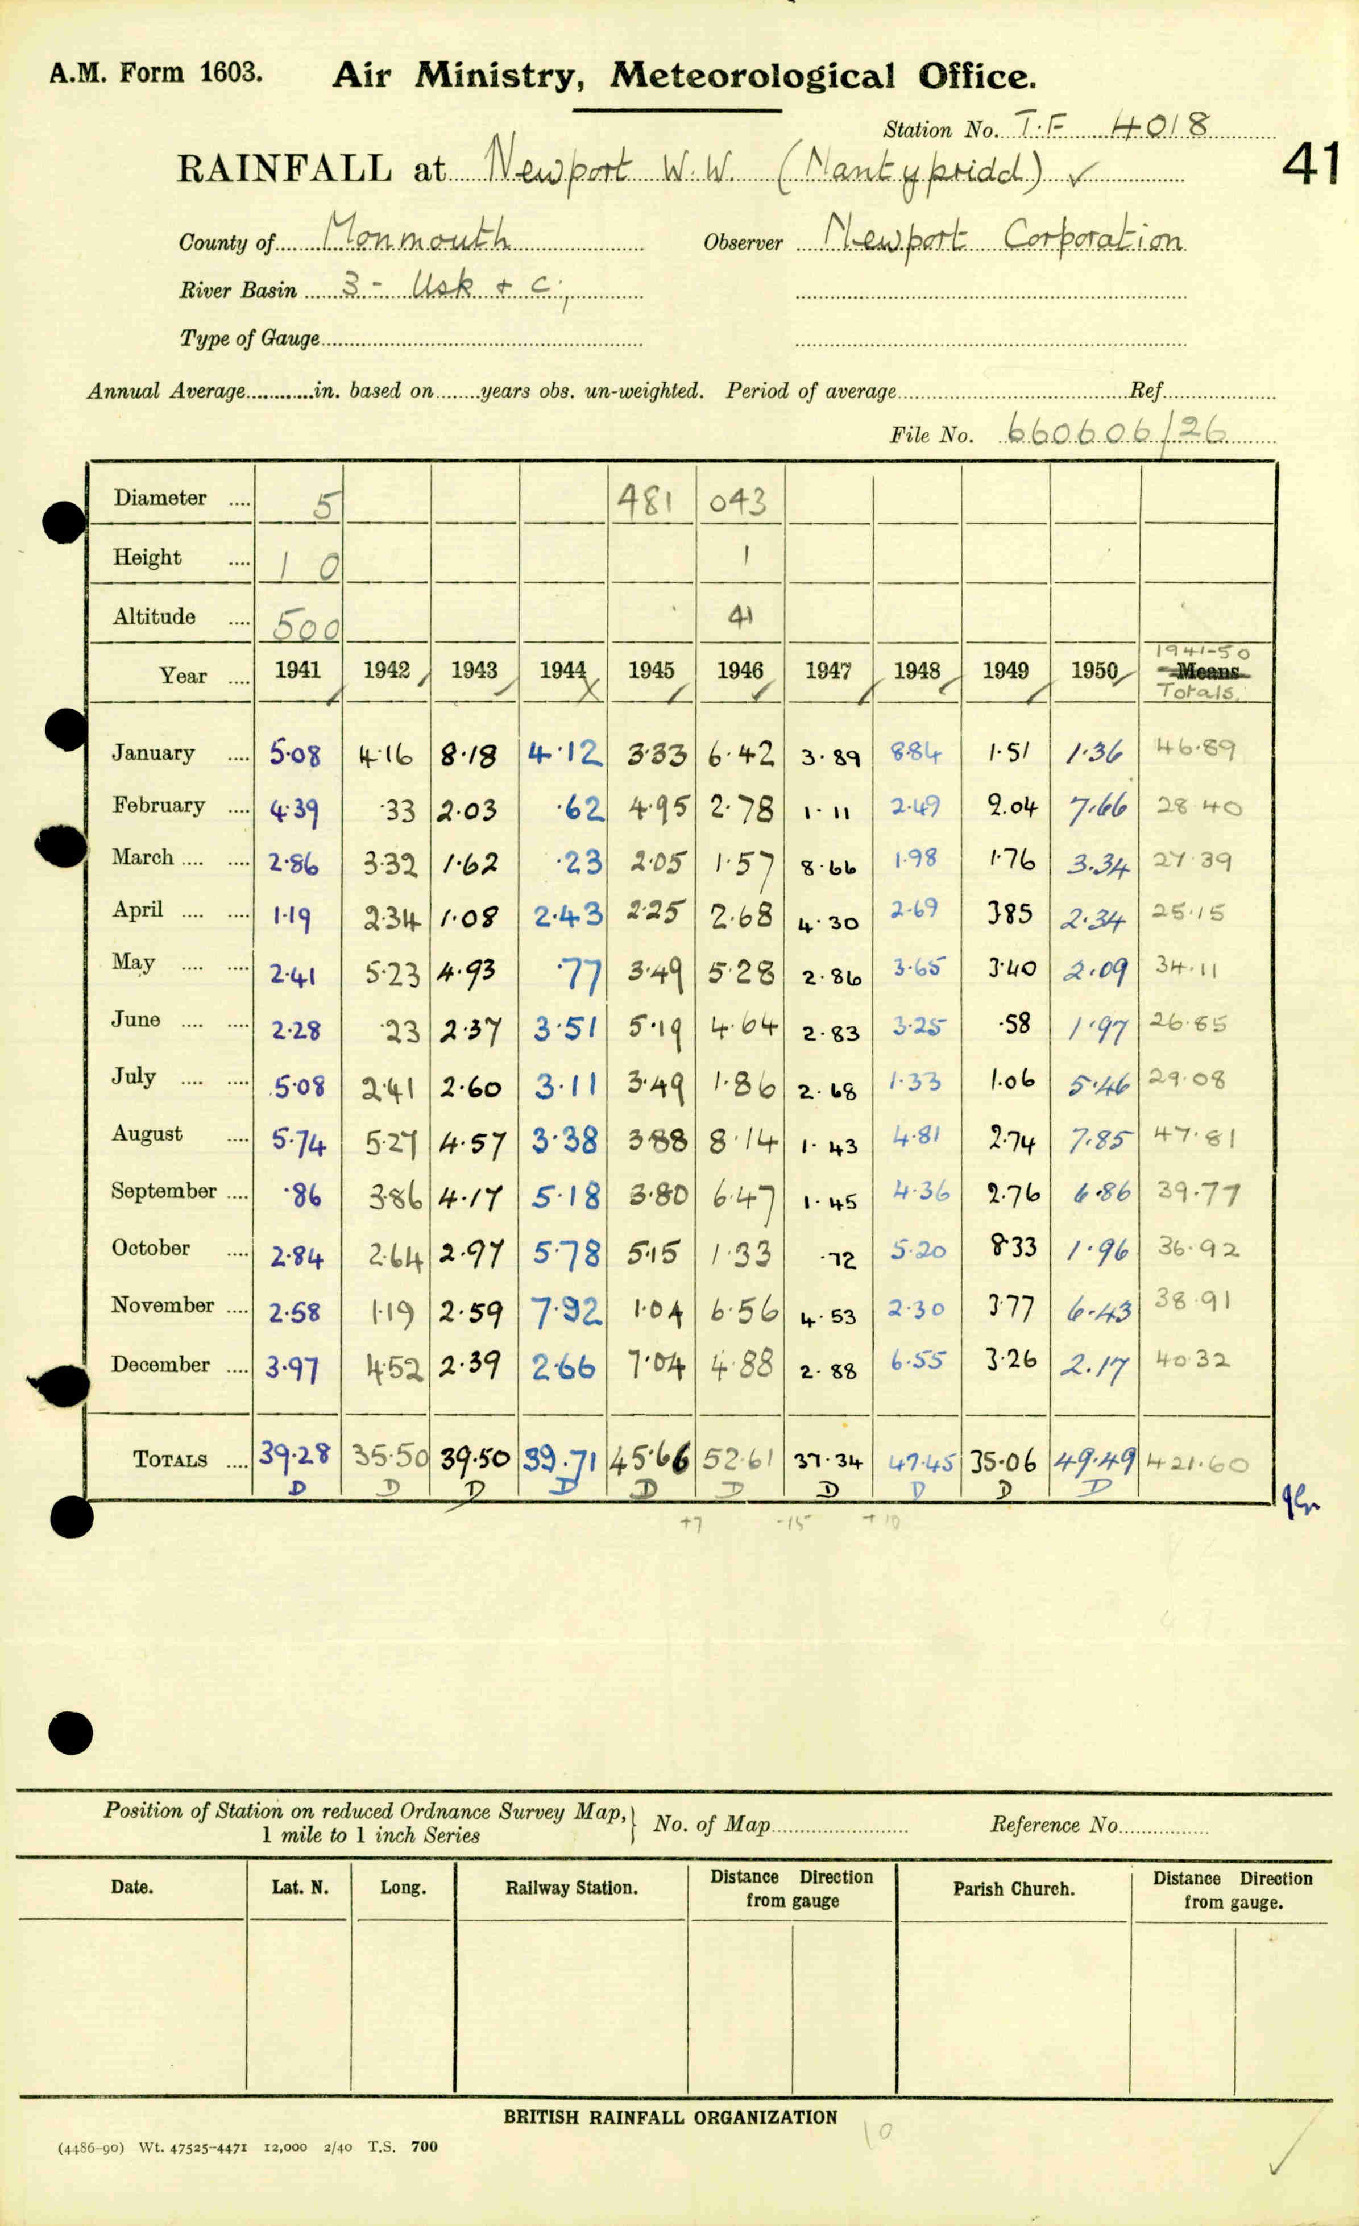 A.M. Form 1603. Air Ministry, Meteorological Office.
Station No. T.F 4018
41
RAINFALL at Newport W.W. (Nantypridd) ✓
County of Monmouth Observer Newport Corporation
River Basin 3 - Usk + c;
Type of Gauge
Annual Average in. based on years obs. un-weighted. Period of average Ref.
File No. 660606/26
Diameter 5 481 043
Height 1 0 1
Altitude 500 41
1941-50
Year 1941 1942 1943 1944 1945 1946 1947 1948 1949 1950 Means
Totals.
January 5.08 4.16 8.18 4.12 3.33 6.42 3.89 8.84 1.51 1.36 46.89
February 4.39 .33 2.03 .62 4.95 2.78 1.11 2.49 2.04 7.66 28.40
March 2.86 3.32 1.62 .23 2.05 1.57 8.66 1.98 1.76 3.34 27.39
April 1.19 2.34 1.08 2.43 2.25 2.68 4.30 2.69 3.85 2.34 25.15
May 2.41 5.23 4.93 .77 3.49 5.28 2.86 3.65 3.40 2.09 34.11
June 2.28 .23 2.37 3.51 5.19 4.64 2.83 3.25 .58 1.97 26.85
July 5.08 2.41 2.60 3.11 3.49 1.86 2.68 1.33 1.06 5.46 29.08
August 5.74 5.27 4.57 3.38 3.88 8.14 1.43 4.81 2.74 7.85 47.81
September .86 3.86 4.17 5.18 3.80 6.47 1.45 4.36 2.76 6.86 39.77
October 2.84 2.64 2.97 5.78 5.15 1.33 .72 5.20 8.33 1.96 36.92
November 2.58 1.19 2.59 7.92 1.04 6.56 4.53 2.30 3.77 6.43 38.91
December 3.97 4.52 2.39 2.66 7.04 4.88 2.88 6.55 3.26 2.17 40.32
TOTALS 39.28 35.50 39.50 39.71 45.66 52.61 37.34 47.45 35.06 49.49 421.60
D D D D D D D D D D
+7 -15 +10
Position of Station on reduced Ordnance Survey Map, No. of Map Reference No.
1 mile to 1 inch Series
Date. Lat. N. Long. Railway Station. Distance Direction from gauge Parish Church. Distance Direction from gauge.
BRITISH RAINFALL ORGANIZATION
10
(4486-90) Wt. 47525-4471 12,000 2/40 T.S. 700